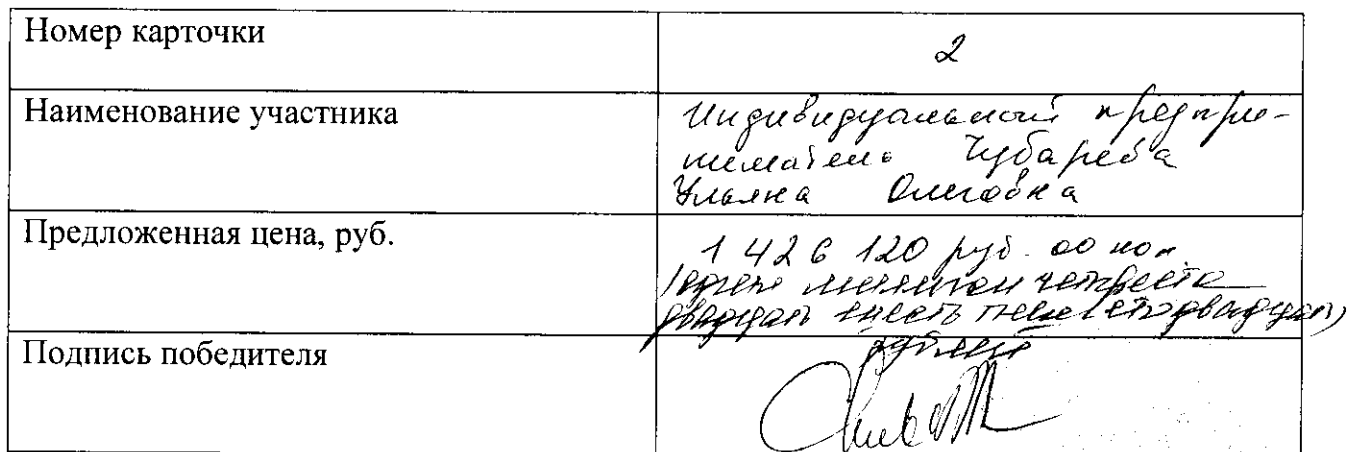 Номер карточки
2
Наименование участника
Индивидуальный предпри-
ниматель Чубарева
Ульяна Олеговна
Предложенная цена, руб.
1 426 120 руб. 00 коп
(один миллион четыреста
двадцать шесть тысяч сто двадцать)
рублей
Подпись победителя